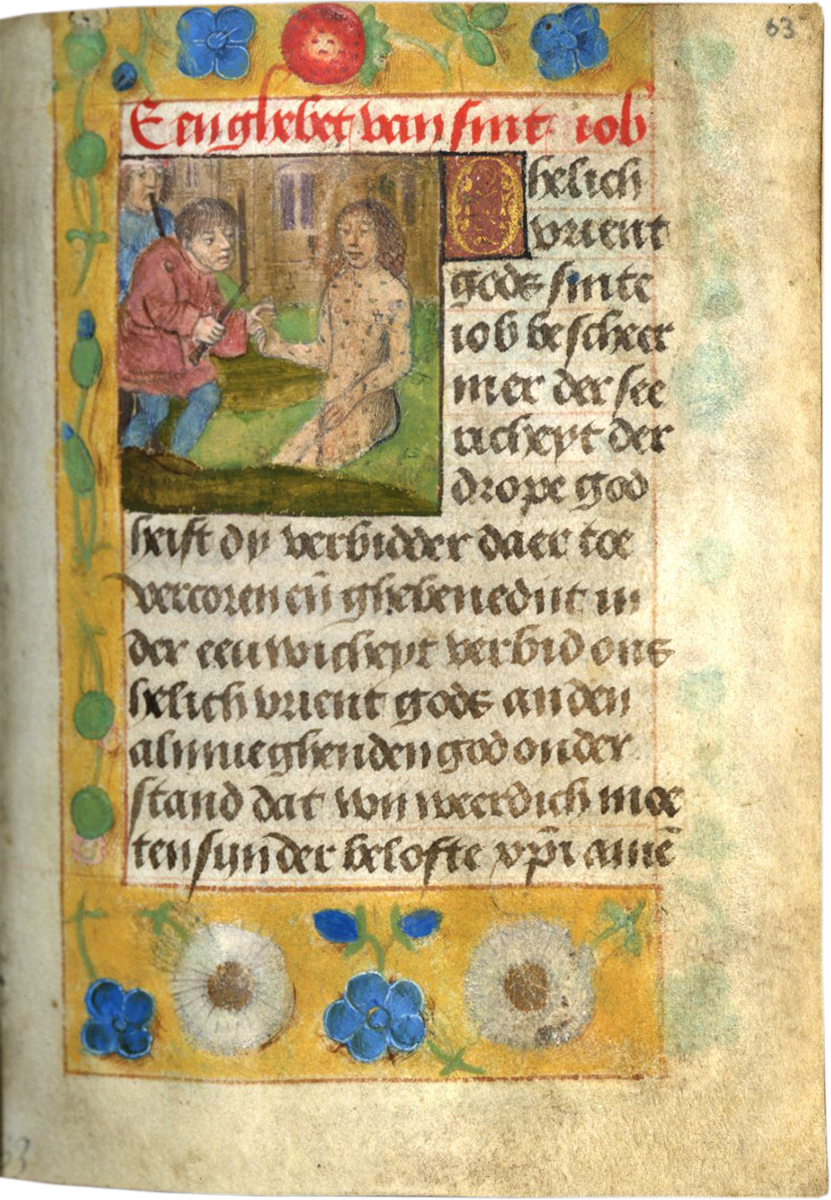 63
Een ghebet van sint iob
O helich
vrient
gods sinte
iob bescheer
mer der see
richeyt der
drope god
heift dy verbidder daer toe
vercoren en̄ ghebenediit in
der eeuwicheyt verbid ons
helich vrient gods an den
almueghenden god onder
stand dat wij weerdich moe
ten sijn der belofte xp̄i amē